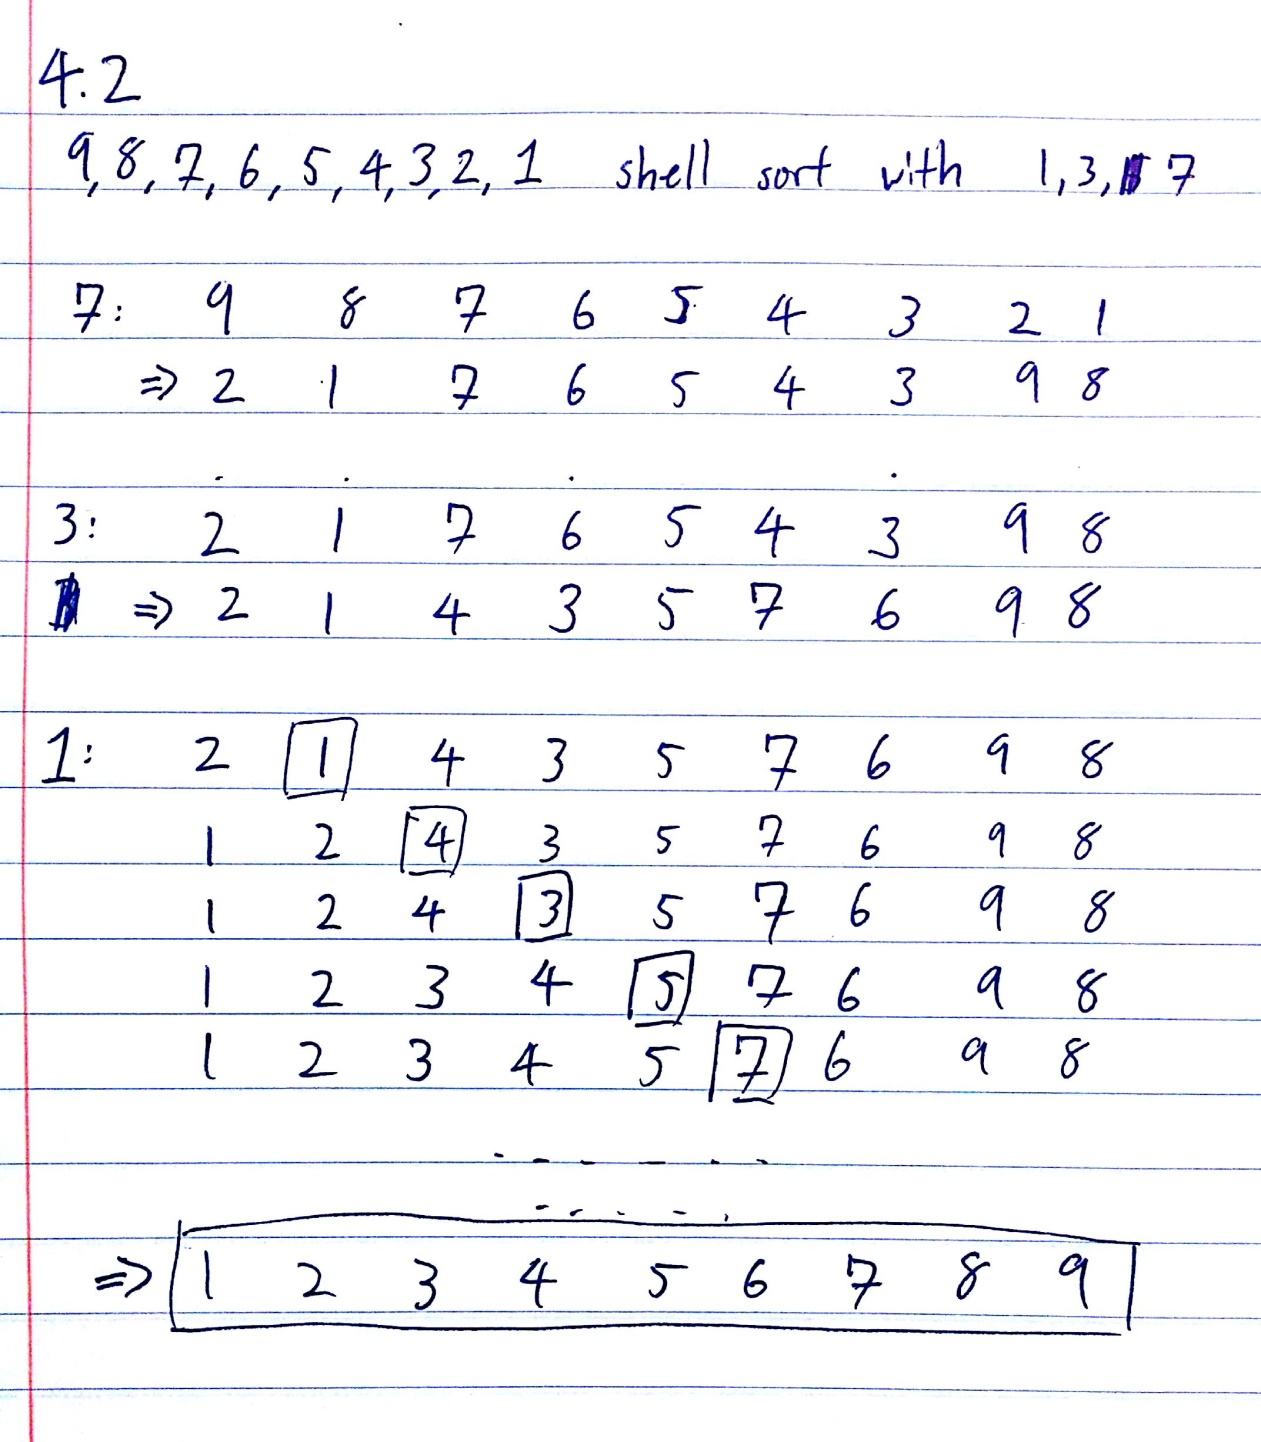 4.2
9, 8, 7, 6, 5, 4, 3, 2, 1 shell sort with 1, 3, 7
7: 9 8 7 6 5 4 3 2 1
⇒ 2 1 7 6 5 4 3 9 8
3: 2 1 7 6 5 4 3 9 8
⇒ 2 1 4 3 5 7 6 9 8
1: 2 1 4 3 5 7 6 9 8
1 2 4 3 5 7 6 9 8
1 2 4 3 5 7 6 9 8
1 2 3 4 5 7 6 9 8
1 2 3 4 5 7 6 9 8
- - - - - -
- - - - -
⇒ 1 2 3 4 5 6 7 8 9